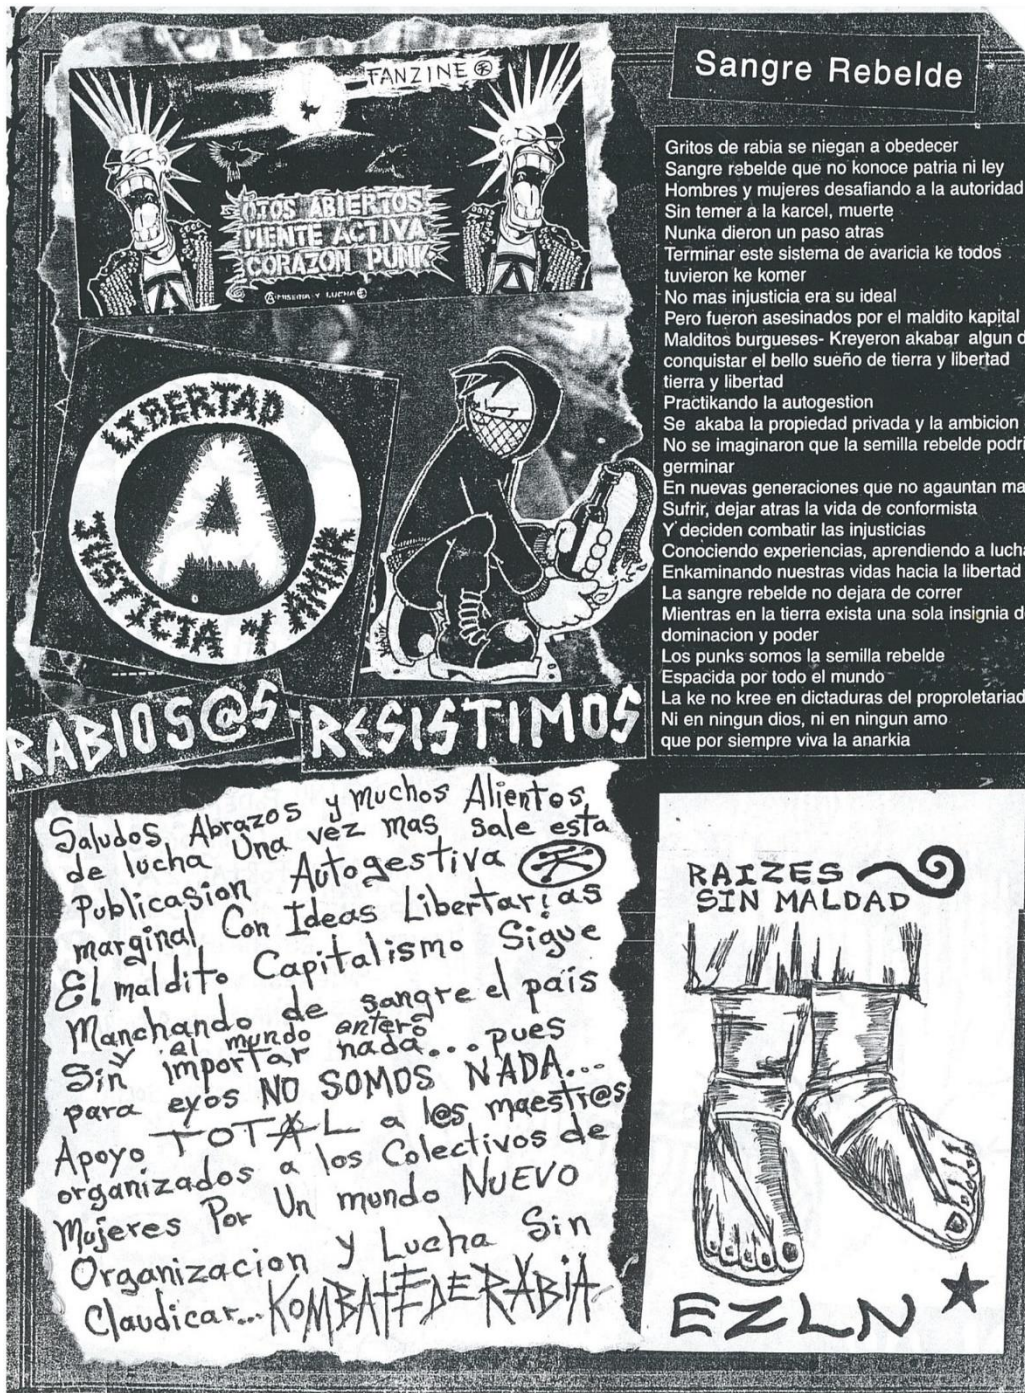 FANZINE
OJOS ABIERTOS
MENTE ACTIVA
CORAZON PUNK
MISERIA Y LUCHA
LIBERTAD
A
JUSTICIA Y AMOR
RABIOS@S-
RESISTIMOS
Saludos Abrazos y muchos Alientos
de lucha Una vez mas sale esta
Publicasion Autogestiva
marginal Con Ideas Libertarias
El maldito Capitalismo Sigue
Manchando de sangre el país
y al mundo entero
Sin importar nada... pues
para eyos NO SOMOS NADA...
Apoyo TOTAL a l@s maestr@s
organizados a los Colectivos de
Mujeres Por Un mundo NUEVO
Organizacion y Lucha Sin
Claudicar... KOMBATE DE RABIA
Sangre Rebelde
Gritos de rabia se niegan a obedecer
Sangre rebelde que no konoce patria ni ley
Hombres y mujeres desafiando a la autoridad
Sin temer a la karcel, muerte
Nunka dieron un paso atras
Terminar este sistema de avaricia ke todos
tuvieron ke komer
No mas injusticia era su ideal
Pero fueron asesinados por el maldito kapital
Malditos burgueses- Kreyeron akabar algun d
conquistar el bello sueño de tierra y libertad
tierra y libertad
Practikando la autogestion
Se akaba la propiedad privada y la ambicion
No se imaginaron que la semilla rebelde podri
germinar
En nuevas generaciones que no agauntan ma
Sufrir, dejar atras la vida de conformista
Y deciden combatir las injusticias
Conociendo experiencias, aprendiendo a lucha
Enkaminando nuestras vidas hacia la libertad
La sangre rebelde no dejara de correr
Mientras en la tierra exista una sola insignia d
dominacion y poder
Los punks somos la semilla rebelde
Espacida por todo el mundo
La ke no kree en dictaduras del proproletariad
Ni en ningun dios, ni en ningun amo
que por siempre viva la anarkia
RAIZES
SIN MALDAD
EZLN